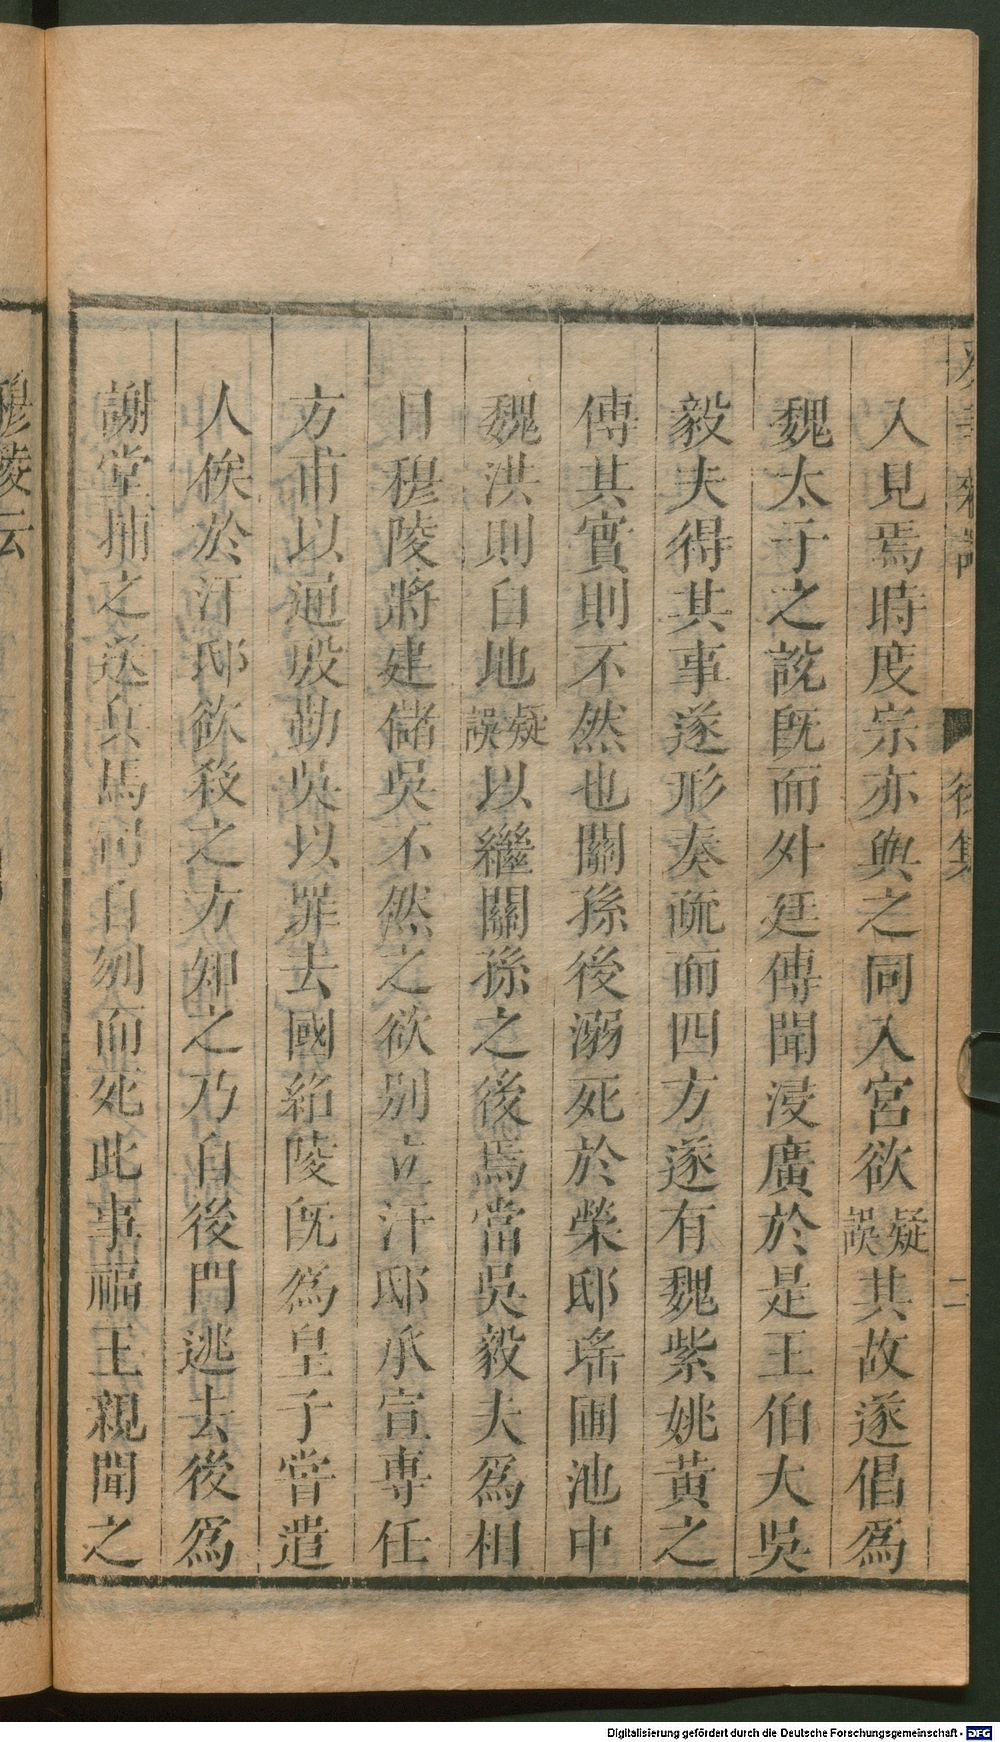 入見焉時度宗亦與之同入宮欲疑誤其故遂倡為
魏太子之説既而外廷傳聞浸廣於是王伯大吳
毅夫得其事遂形奏疏而四方遂有魏紫姚黃之
傳其實則不然也關孫後溺死於榮邸瑤圃池中
魏洪則自地疑誤以繼關孫之後焉當吳毅夫為相
日穆陵將建儲吳不然之欲别立汗邸承宣専任
方甫以通殷勤吳以罪去國給陵既為皇子嘗遣
人俟於汗邸欲殺之方知之乃自後門逃去後為
謝堂捕之送兵馬司自刎而死此事福王親聞之
穆陵云
癸辛雜識
後集
二
Digitalisierung gefördert durch die Deutsche Forschungsgemeinschaft - DFG